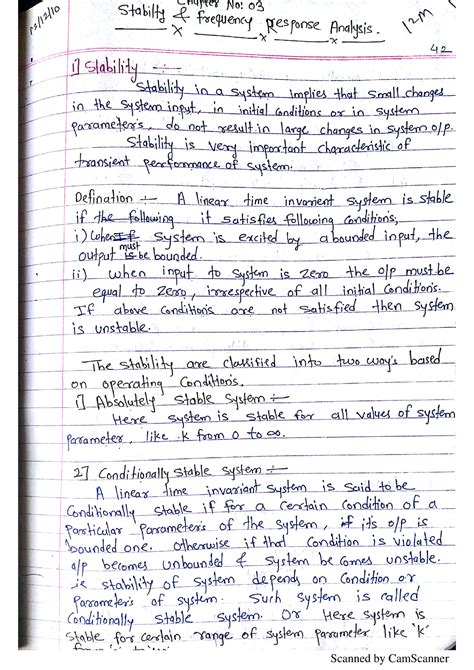 Chapter No: 03
Stabilty & frequency Response Analysis.
12M
42
1] Stability :-
Stability in a system implies that small changes
in the system input, in initial conditions or in system
parameters, do not result in large changes in system o/p.
Stability is very important characteristic of
transient performance of system.
Defination :- A linear time invarient system is stable
if the following it satisfies following conditions;
i) When If system is excited by a bounded input, the
output must is be bounded.
ii) when input to system is zero the o/p must be
equal to zero, irrespective of all initial Conditions.
If above Conditions are not satisfied then system
is unstable.
The stability are classified into two way's based
on operating Conditions.
1] Absolutely Stable System :-
Here system is stable for all values of system
parameter, like k from 0 to ∞.
2] Conditionally stable system :-
A linear time invariant system is said to be
Conditionally stable if for a certain condition of a
particular parameters of the system, if its o/p is
bounded one. Otherwise if that Condition is violated
o/p becomes unbounded & system be comes unstable.
ie stability of system depends on Condition or
Parameters of system. Such system is called
Conditionally stable system. Or Here system is
stable for certain range of system parameter like 'k'
Scanned by CamScanner